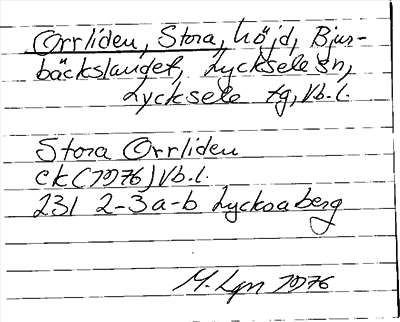 Orrliden, Stora, höjd, Bjur-
bäckslandet, Lycksele sn,
Lycksele tg, Vb.l.
Stora Orrliden
ek (1976) Vb.l.
231 2-3 a-b Lycksaberg
M. Lgn 1976